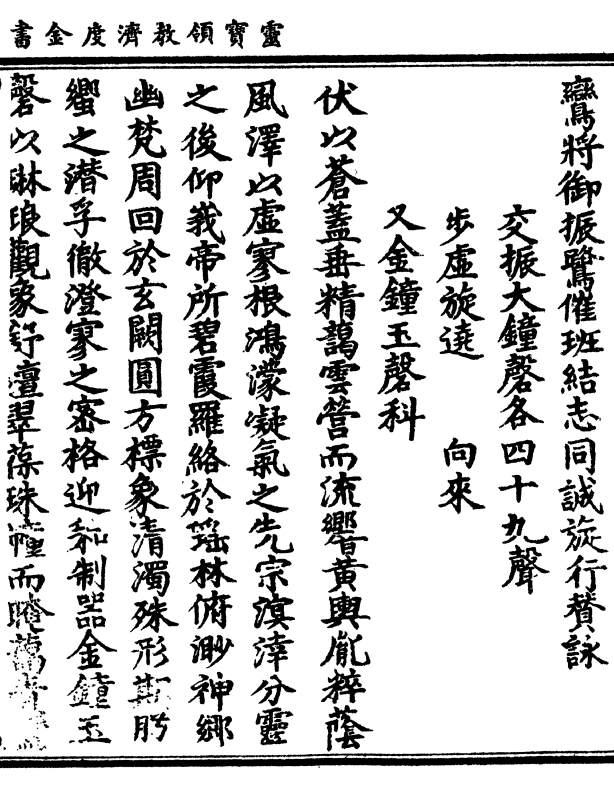 靈寶領教濟度金書
鸞將御振鷺催班結志同誠旋行贊詠
交振大鐘磬各四十九聲
步虛旋遶　向來
又金鐘玉磬科
伏以蒼蓋垂精藹雲營而流響黃輿胤粹蔭
風澤以虛寥根鴻濛凝氣之先宗溟涬分靈
之後仰羲帝所碧霞羅絡於瑶林俯渺神鄉
幽梵周回於玄闕圓方標象清濁殊形斯肸
蠁之潛孚徹澄寥之密格迎和制器金鐘玉
磬以琳琅觀象舒壇翠葆珠幢而晻藹